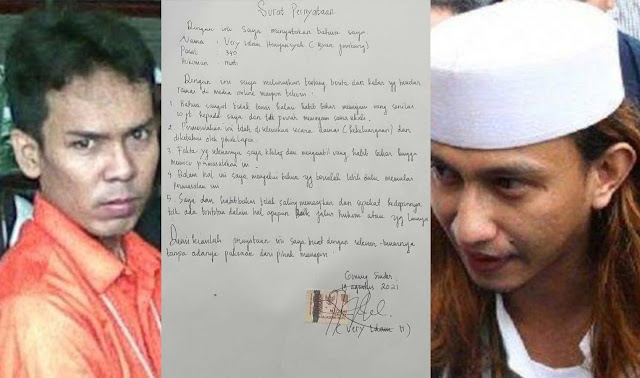 Surat Pernyataan
Dengan ini saya menyatakan bahwa saya
Nama : Very Idam Henyansyah (Ryan Jombang)
Pasal : 340
Hukuman : mati
Dengan ini saya meluruskan tentang berita dan kabar yg beredar
ramai di media online maupun televisi :
1. Bahwa sangat tidak benar kalau habib bahar meminjam uang senilai
10 jt kepada saya dan tdk pernah meminjam sama sekali.
2. Permasalahan ini telah di selesaikan secara damai (kekeluargaan) dan
diketahui oleh pihak Lapas.
3. Fakta yg sebenarnya saya khilaf dan mengambil uang habib bahar hingga
memicu permasalahan ini.
4. Dalam hal ini saya mengakui bahwa yg bersalah lebih dulu memulai
permasalahan ini
5. Saya dan habib bahar telah saling memaafkan dan sepakat kedepannya
tdk ada tuntutan dalam hal apapun baik jalur hukum atau yg lainnya
Demikianlah pernyataan ini saya buat dengan sebenar-benarnya
tanpa adanya paksaan dari pihak manapun
Gunung Sindur
19 agustus 2021
(Very Idam H)